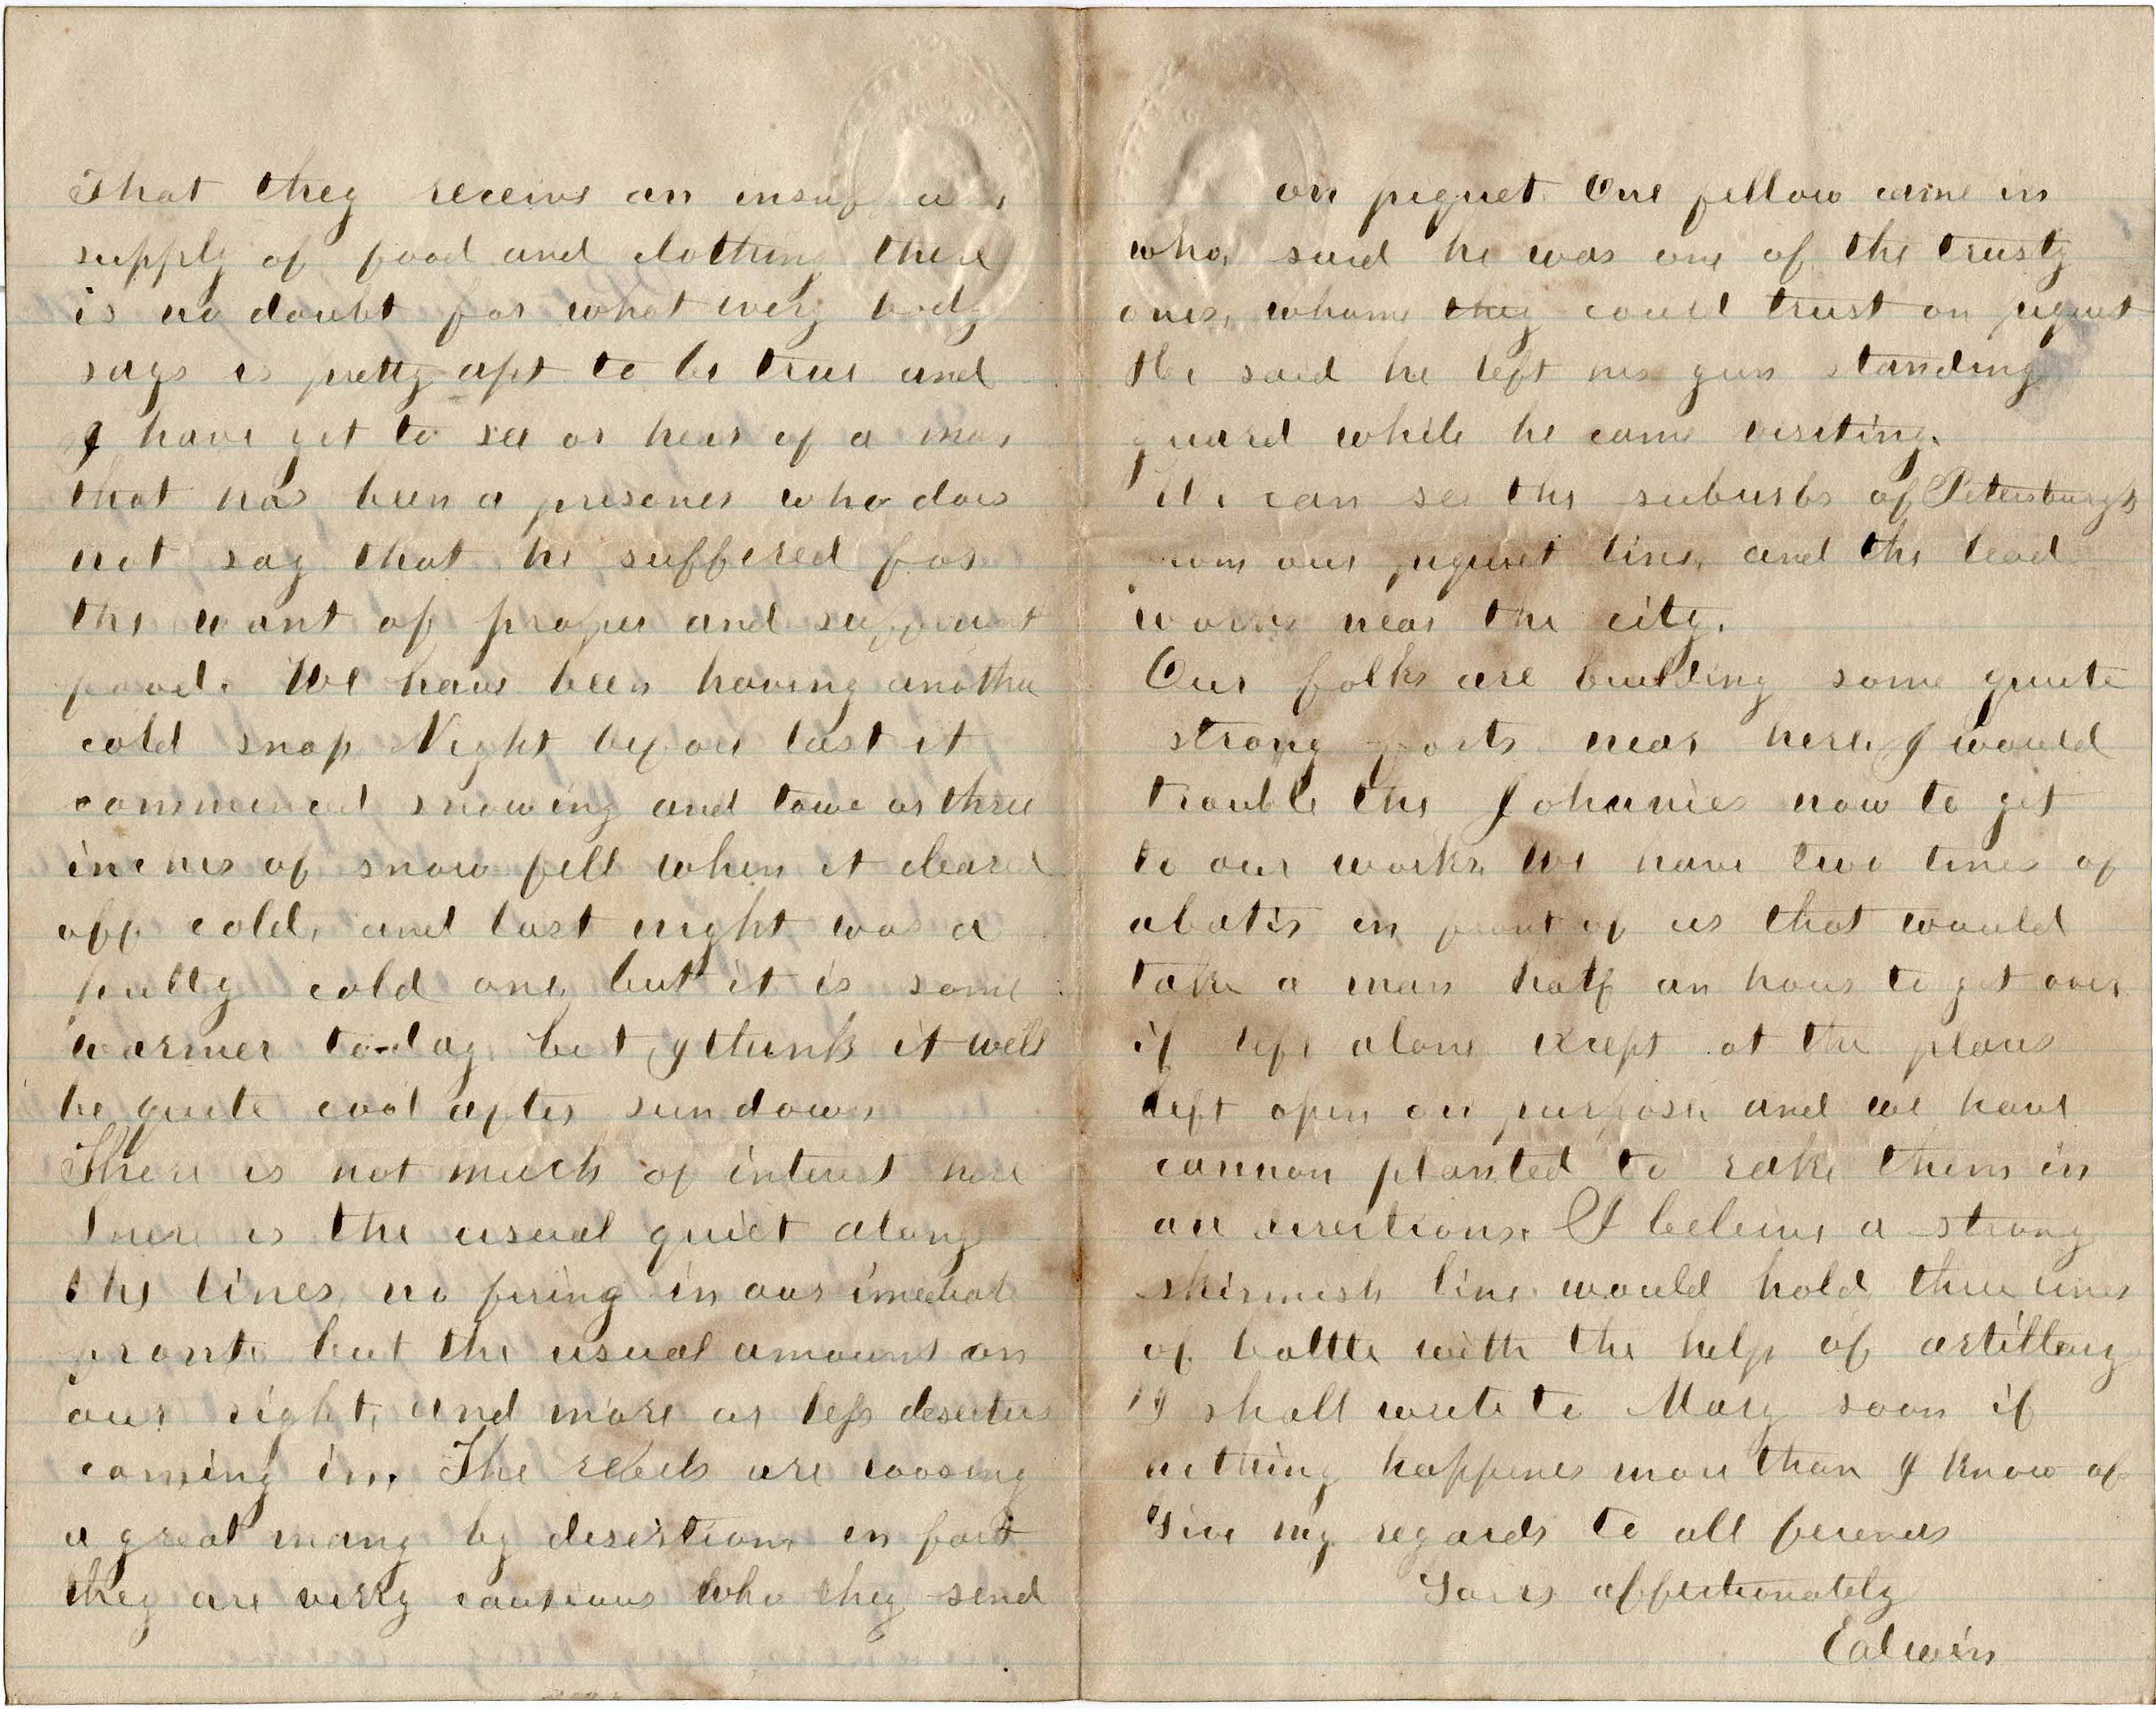 That they receive an
supply of food and clothing there
is no doubt for what every body
says is pretty apt to be true and
I have yet to see or hear of a man
that has been a presoner who does
not say that he suffered for
the want of proper and sufficient
food. We have been having another
cold snap Night before last it
commenced snowing and towe or three
inches of snow fell when it cleared
off cold, and last night was a
pretty cold one, but it is some
warmer to-day but I think it will
be quite cool after sundown
There is not much of interest here
There is the usual quiet along
the lines, no fireing in our imediate
front, but the usual amount on
our right, and more or less deserters
coming in. The rebels are loosing
a great many by desertion, in fact
they are verry cautious who they send
on piquet. One fellow came in
who, said he was one of the trusty
ones, whome they could trust on piquet
He said he left his gun standing
guard while he came visiting.
We can see the suburbs of Petersburgh
from our piquet line, and the lead
works near the city.
Our folks are building some quite
strong forts near here, I would
trouble the Johnnies now to get
to our works. We have two lines of
abatis in front of us that would
take a man half an hour to get over
if left alone except at the places
left open on purpose, and we have
cannon planted to rake them in
all directions. I beleive a strong
skirmish line would hold three lines
of battle with the help of artillery
I shall write to Mary soon if
nothing happenes more than I know of
Give my regards to all freinds
Yours affectionately
Edwin